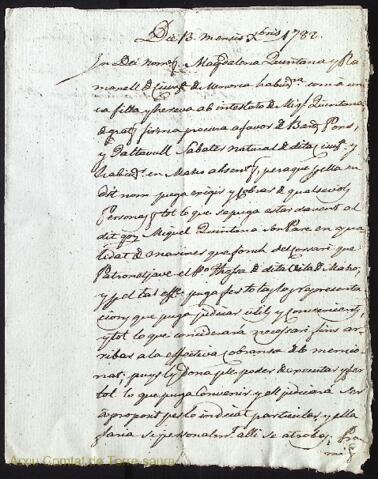 Die 13 mensis Xbris 1782.
In Dei nomine Magdalena Quintana y Ra-
manell de de Menorca com â uni-
ca filla y hereva ab intestato de Miql Quintana
de grat firma procura a favor de Bart Pons,
y Sabater natural de dita y
en Maho absent, peraque per ella y en
dit nom puga exigir y cobrar de qualsevol
Persona tot lo que se puga estar devent al
dit Miquel Quintana son Pare en qua-
litat de mariner que fonch del corsari que
Patronetjave el de dita de Maho,
y per tal puga fer totas las representa-
cions que puga judicar utils y convenients
y tot lo que considerara necessari fins ar-
ribar a la effectiva cobransa de lo mencio-
nat, puys ly dona ple poder de executar y fer
tot lo que puga convenir, y ell judicara ser
a proposit per lo indicat particular, y ella
faria si personalment alli se atrobas,
Arxiu Comtat de Torre-saura